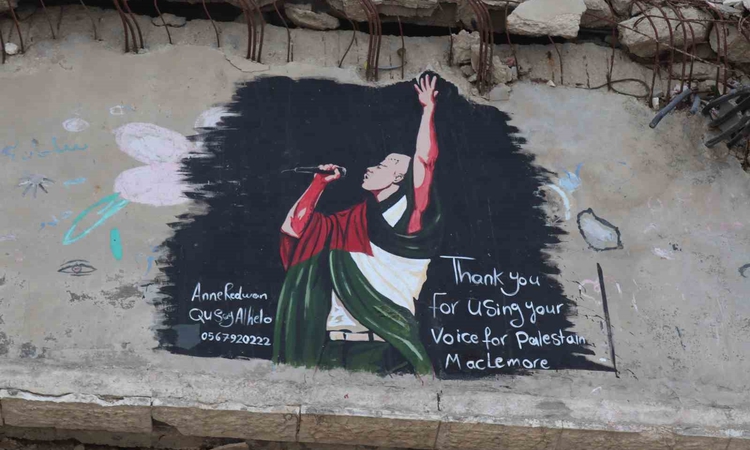 AnneRedwan
QusayAlhelo
0567920222
Thank you
For Using your
Voice for Palestain
MacLemore